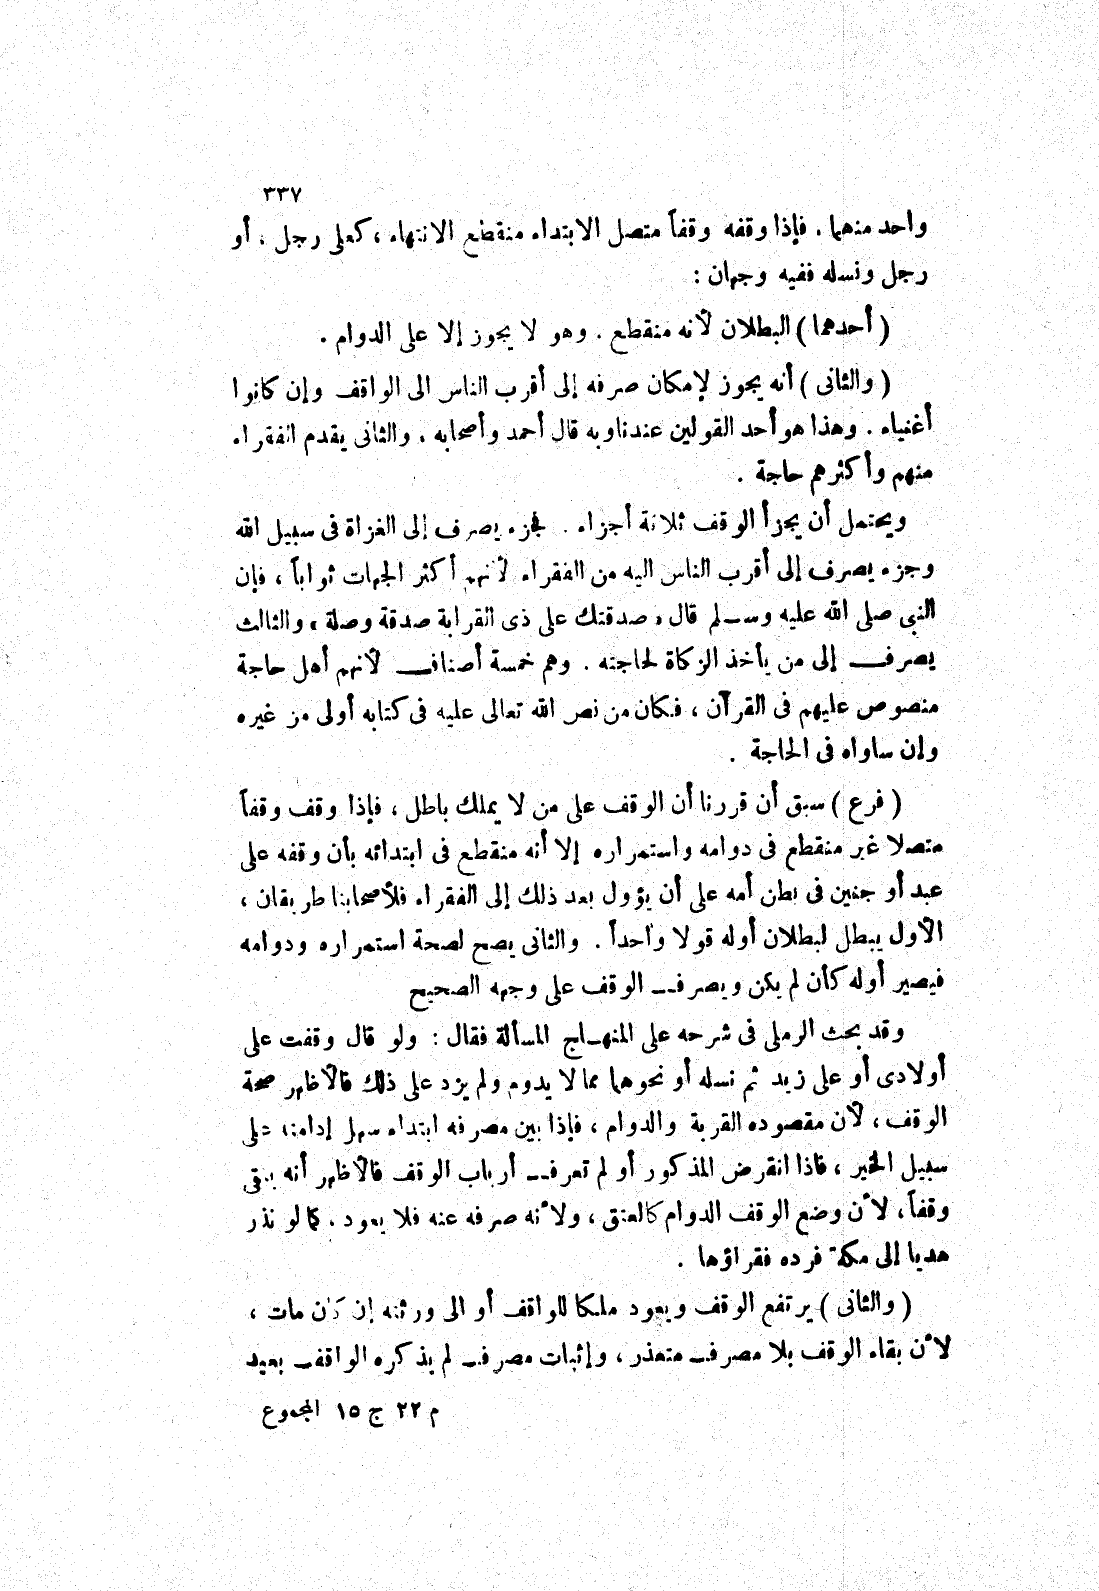 ٣٣٧
واحد منهما . فإذا وقفه وقفاً متصل الابتداء منقطع الانتهاء ، كعلى رجل ، أو
رجل ونسله ففيه وجهان :
( أحدهما ) البطلان لأنه منقطع . وهو لا يجوز إلا على الدوام .
( والثانى ) أنه يجوز لإمكان صرفه إلى أقرب الناس الى الواقف وإن كانوا
أغنياء . وهذا هو أحد القولين عندنا وبه قال أحمد وأصحابه ، والثانى يقدم الفقراء
منهم وأكثرهم حاجة .
ويحتمل أن يجزأ الوقف ثلاثة أجزاء . فجزء يصرف إلى الغزاة فى سبيل الله
وجزء يصرف إلى أقرب الناس اليه من الفقراء لأنهم أكثر الجهات ثواباً ، فإن
النبى صلى الله عليه وسلم قال « صدقتك على ذى القرابة صدقة وصلة » والثالث
يصرف إلى من يأخذ الزكاة لحاجته . وهم خمسة أصناف لأنهم أهل حاجة
منصوص عليهم فى القرآن ، فكان من نص الله تعالى عليه فى كتابه أولى من غيره
وإن ساواه فى الحاجة .
( فرع ) سبق أن قررنا أن الوقف على من لا يملك باطل ، فإذا وقف وقفاً
متصلا غير منقطع فى دوامه واستمراره إلا أنه منقطع فى ابتدائه بأن وقفه على
عبد أو جنين فى بطن أمه على أن يؤول بعد ذلك إلى الفقراء فلأصحابنا طريقان ،
الأول يبطل لبطلان أوله قولا واحداً . والثانى يصح لصحة استمراره ودوامه
فيصير أوله كأن لم يكن ويصرف الوقف على وجهه الصحيح
وقد بحث الرملى فى شرحه على المنهاج المسألة فقال : ولو قال وقفت على
أولادى أو على زيد ثم نسله أو نحوهما مما لا يدوم ولم يزد على ذلك فالأظهر صحة
الوقف ، لأن مقصوده القربة والدوام ، فإذا بين مصرفه ابتداء سهل إدامته على
سبيل الخير ، فاذا انقرض المذكور أو لم تعرف أرباب الوقف فالأظهر أنه يبقى
وقفاً ، لأن وضع الوقف الدوام كالعتق ، ولأنه صرفه عنه فلا يعود . كما لو نذر
هديا إلى مكة فرده فقراؤها .
( والثانى ) يرتفع الوقف ويعود ملكا للواقف أو الى ورثته إن كان مات ،
لأن بقاء الوقف بلا مصرف متعذر ، وإثبات مصرف لم يذكره الواقف بعيد
م ٢٢ ج ١٥ المجموع